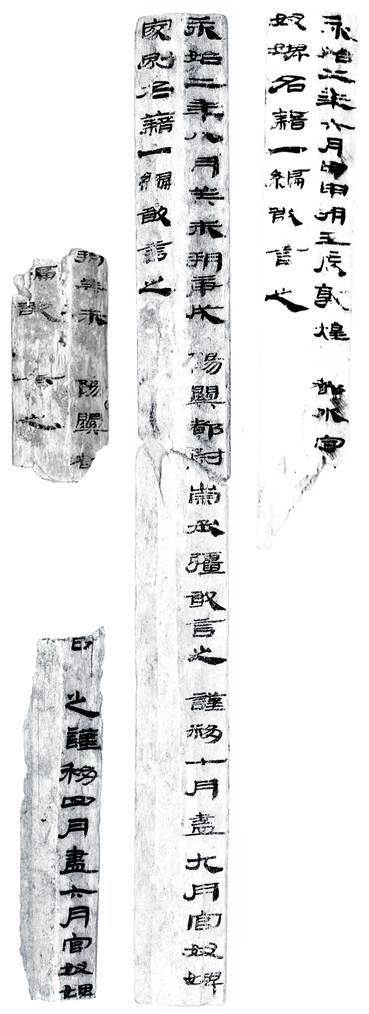 永始二年六月甲申朔壬辰敦煌 都水官
奴婢名籍一編敢言之
永始二年八月癸未朔庚戌 陽關都尉崇丞彊敢言之 謹移十月盡九月官奴婢
家別名籍一編敢言之
朔癸未 陽關都
編敢言之
之 謹移四月盡六月官奴婢